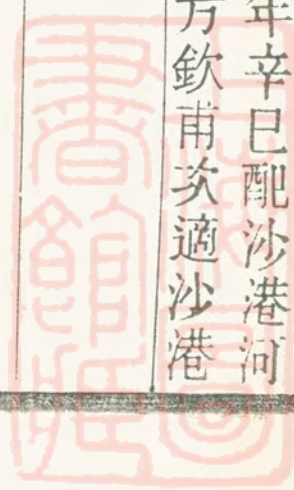 年辛巳配沙港河
方欽甫次適沙港